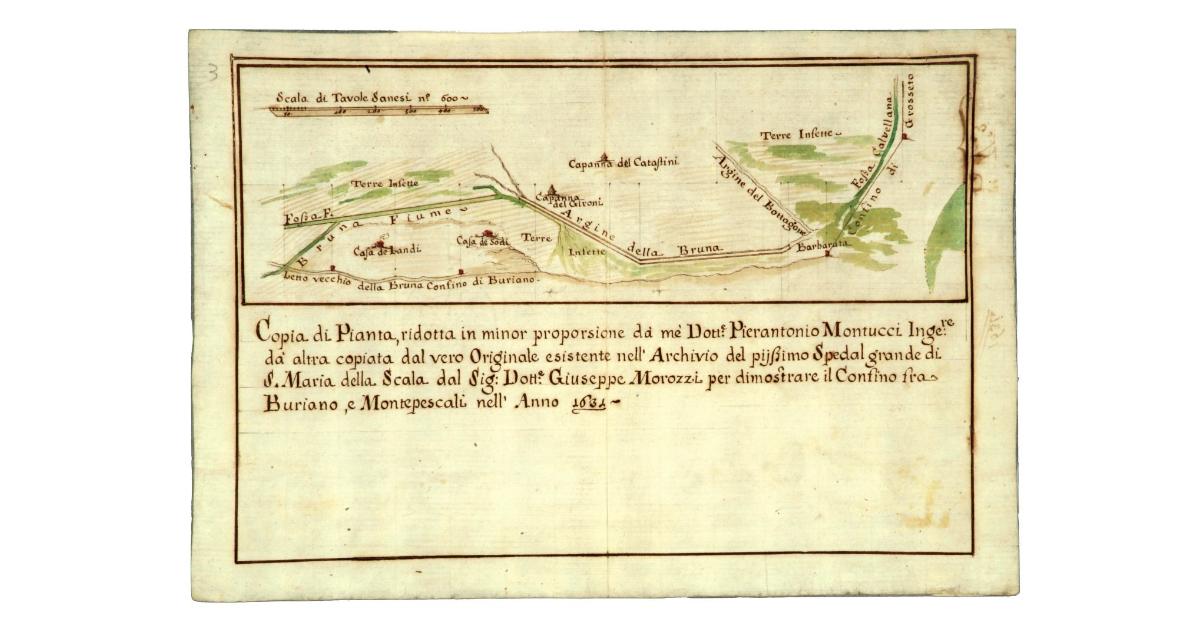 3
Scala di Tavole Sanesi nº 600
Terre Infette
Capanna del Catastini
Terre Infette
Fossa Calvellana
Confino di Grosseto
Argine del Bottagone
Capanna del Gironi
Fossa F.
Bruna Fiume
Casa de Landi
Casa de Sodi
Terre Infette
Argine della Bruna
Barbarata
Leno vecchio della Bruna Confino di Buriano
Copia di Pianta, ridotta in minor proporsione da me Dottʳ. Pierantonio Montucci Ingeʳᵉ
da altra copiata dal vero Originale esistente nell' Archivio del pijssimo Spedal grande di
S. Maria della Scala dal Sig: Dottʳ. Giuseppe Morozzi per dimostrare il Confino fra
Buriano, e Montepescali nell' Anno 1631